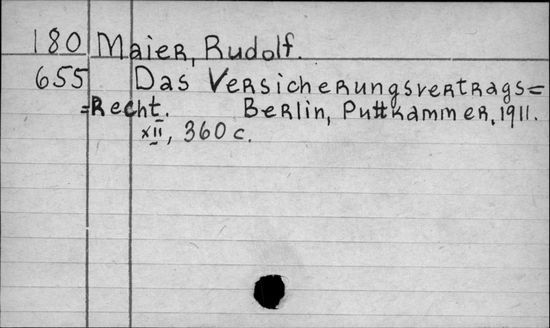 180 Maier, Rudolf.
655 Das Versicherungsvertrags=
=Recht. Berlin, Puttkammer, 1911.
XII, 360 c.